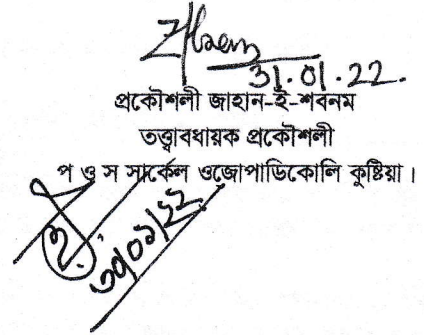 31.01.22.
প্রকৌশলী জাহান-ই-শবনম
তত্ত্বাবধায়ক প্রকৌশলী
প ও স সার্কেল ওজোপাডিকোলি কুষ্টিয়া।
৩০/০১/২২